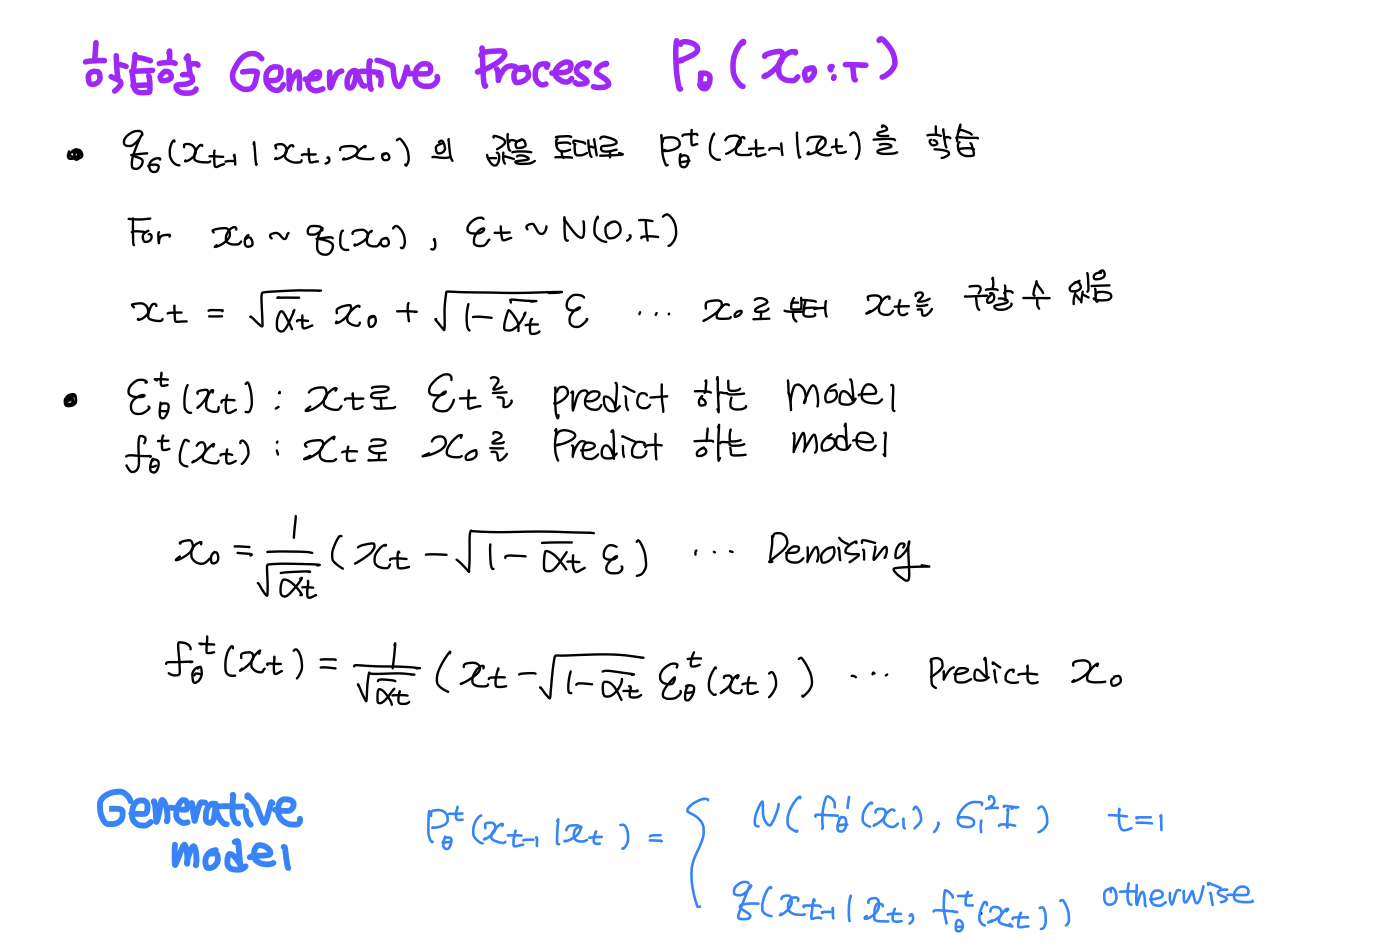 학습할 Generative Process P_θ(x_{0:T})
• q_σ(x_{t-1} | x_t, x_0) 의 값을 토대로 p_θ^t(x_{t-1} | x_t)를 학습
For x_0 ~ q(x_0), ε_t ~ N(0, I)
x_t = √(ᾱ_t) x_0 + √(1-ᾱ_t) ε ... x_0로부터 x_t를 구할 수 있음
• ε_θ^t(x_t) : x_t로 ε_t를 predict 하는 model
f_θ^t(x_t) : x_t로 x_0를 Predict 하는 model
x_0 = 1/√(ᾱ_t) (x_t - √(1-ᾱ_t) ε) ... Denoising
f_θ^t(x_t) = 1/√(ᾱ_t) (x_t - √(1-ᾱ_t) ε_θ^t(x_t)) ... Predict x_0
Generative
model
p_θ^t(x_{t-1} | x_t) = {
N(f_θ^1(x_1), σ_1^2 I) t=1
q_σ(x_{t-1} | x_t, f_θ^t(x_t)) otherwise